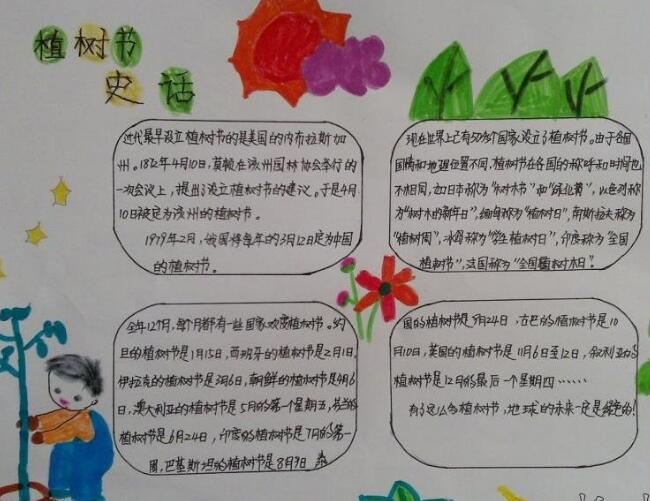 植树节
史话
近代最早设立植树节的是美国的内布拉斯加
州。1872年4月10日,莫顿在该州园林协会举行的
一次会议上,提出了设立植树节的建议。于是4月
10日被定为该州的植树节。
1979年2月,我国将每年的3月12日定为中国
的植树节。
现在世界上已有50多个国家设立了植树节。由于各国
国情和地理位置不同,植树节在各国的称呼和时间也
不相同,如日本称为“树木节”和“绿化黄”,以色列称
为“树木的新年日”,缅甸称为“植树日”,南斯拉夫称为
“植树周”,冰岛称为“学生植树日”,印度称为“全国
植树节”,法国称为“全国植树日”。
全年12个月,每个月都有一些国家欢度植树节。约
旦的植树节是1月15日,西班牙的植树节是2月1日,
伊拉克的植树节是3月6日,朝鲜的植树节是4月6
日,澳大利亚的植树节是5月的第一个星期五,芬兰的
植树节是6月24日,印度的植树节是7月的第一
周,巴基斯坦的植树节是8月9日,泰
国的植树节是9月24日,古巴的植树节是10
月10日,英国的植树节是11月6日至12日,叙利亚的
植树节是12月的最后一个星期四……
有了这么多植树节,地球的未来一定是绿色的!